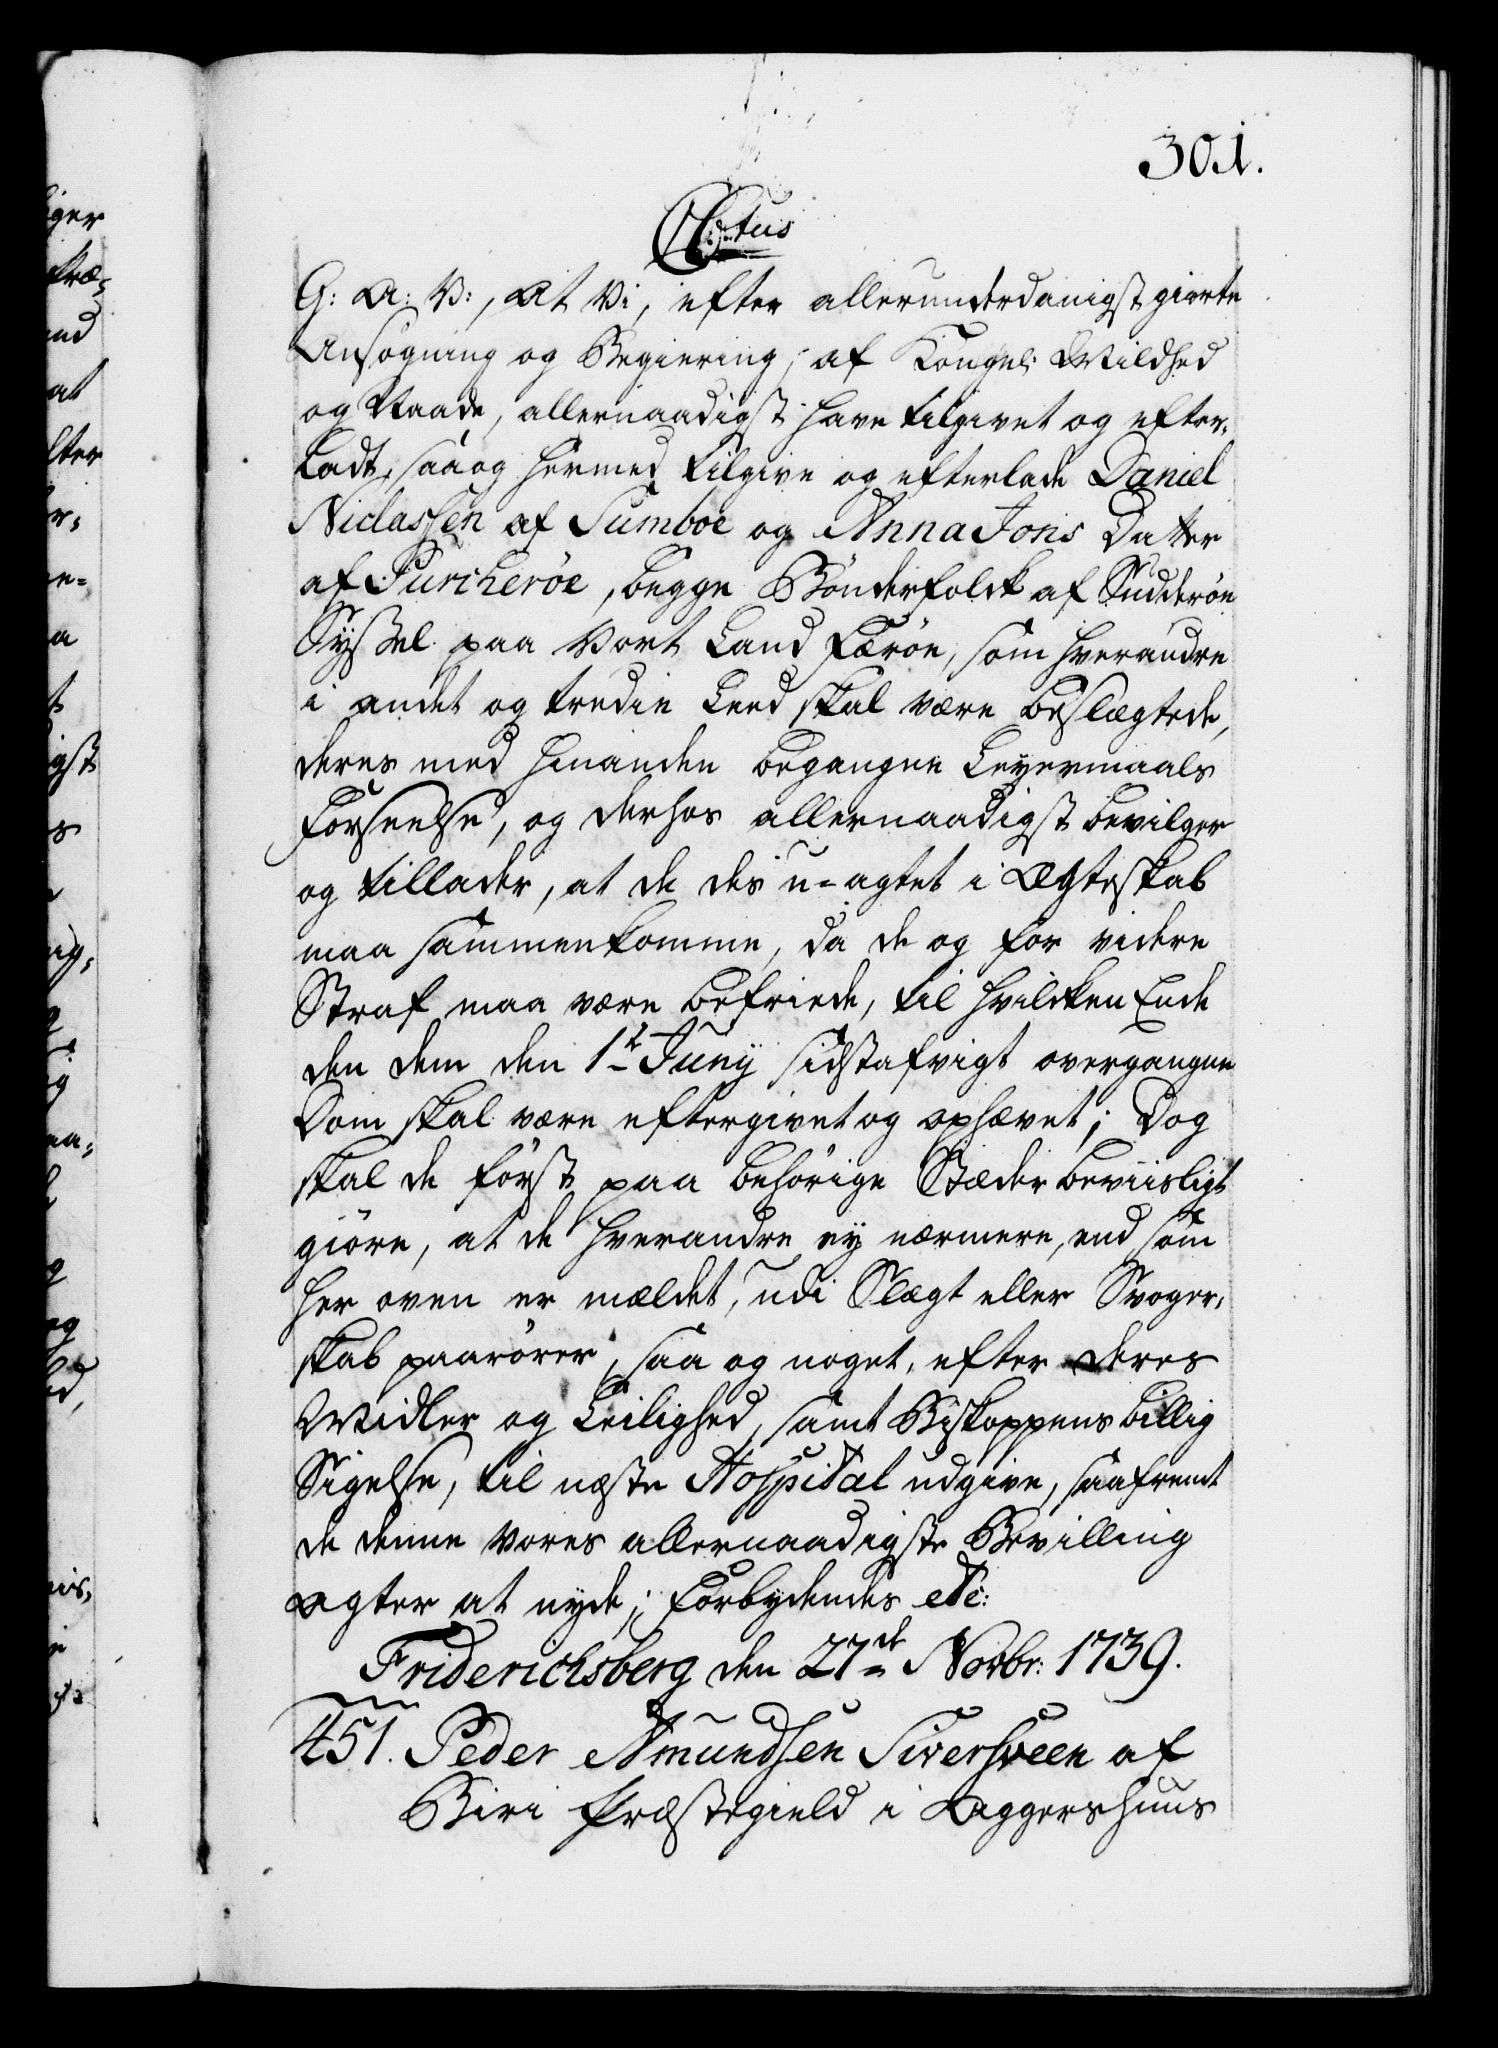 301.
C6tus
G: A: V:, At Vi, efter allerunderdanigst giorte
Ansøgning og Begiering, af Kongel: Mildhed
og Naade, allernaadigst have tilgivet og efter-
ladt, saa og hermed tilgive og efterlade Daniel
Niclassen af Sumboe og Anna Jons Datter
af Purcherøe, begge Bønderfolck af Sudderøe
Syssel paa Vort Land Færøe, som hverandre
i andet og tredie Leed skal være beslægtede,
deres med hinanden begangne Leyermaals
Forseelse, og derhos allernaadigst bevilger
og tillader, at de des u-agtet i Ægteskab
maa sammenkomme, da de og for videre
Straf maa være befriede, til hvilcken Ende
den dem den 1te Junij sidstafvigt overgangne
Dom skal være eftergivet og ophævet; Dog
skal de først paa behørige Stæder beviisligt
giøre, at de hverandre ey nærmere, end som
her oven er mældet, udi Slægt eller Svoger-
skab paarører, saa og noget, efter deres
Midler og Leilighed, samt Biskoppens billig
Sigelse, til næste Hospital udgive, saafremt
de denne Vores allernaadigste Bevilling
agter at nyde; Forbydendes etc:
Friderichsberg den 27de Novbr: 1739.
451. Peder Amundsen Siversveen af
Biri Præstegield i Aggershuus